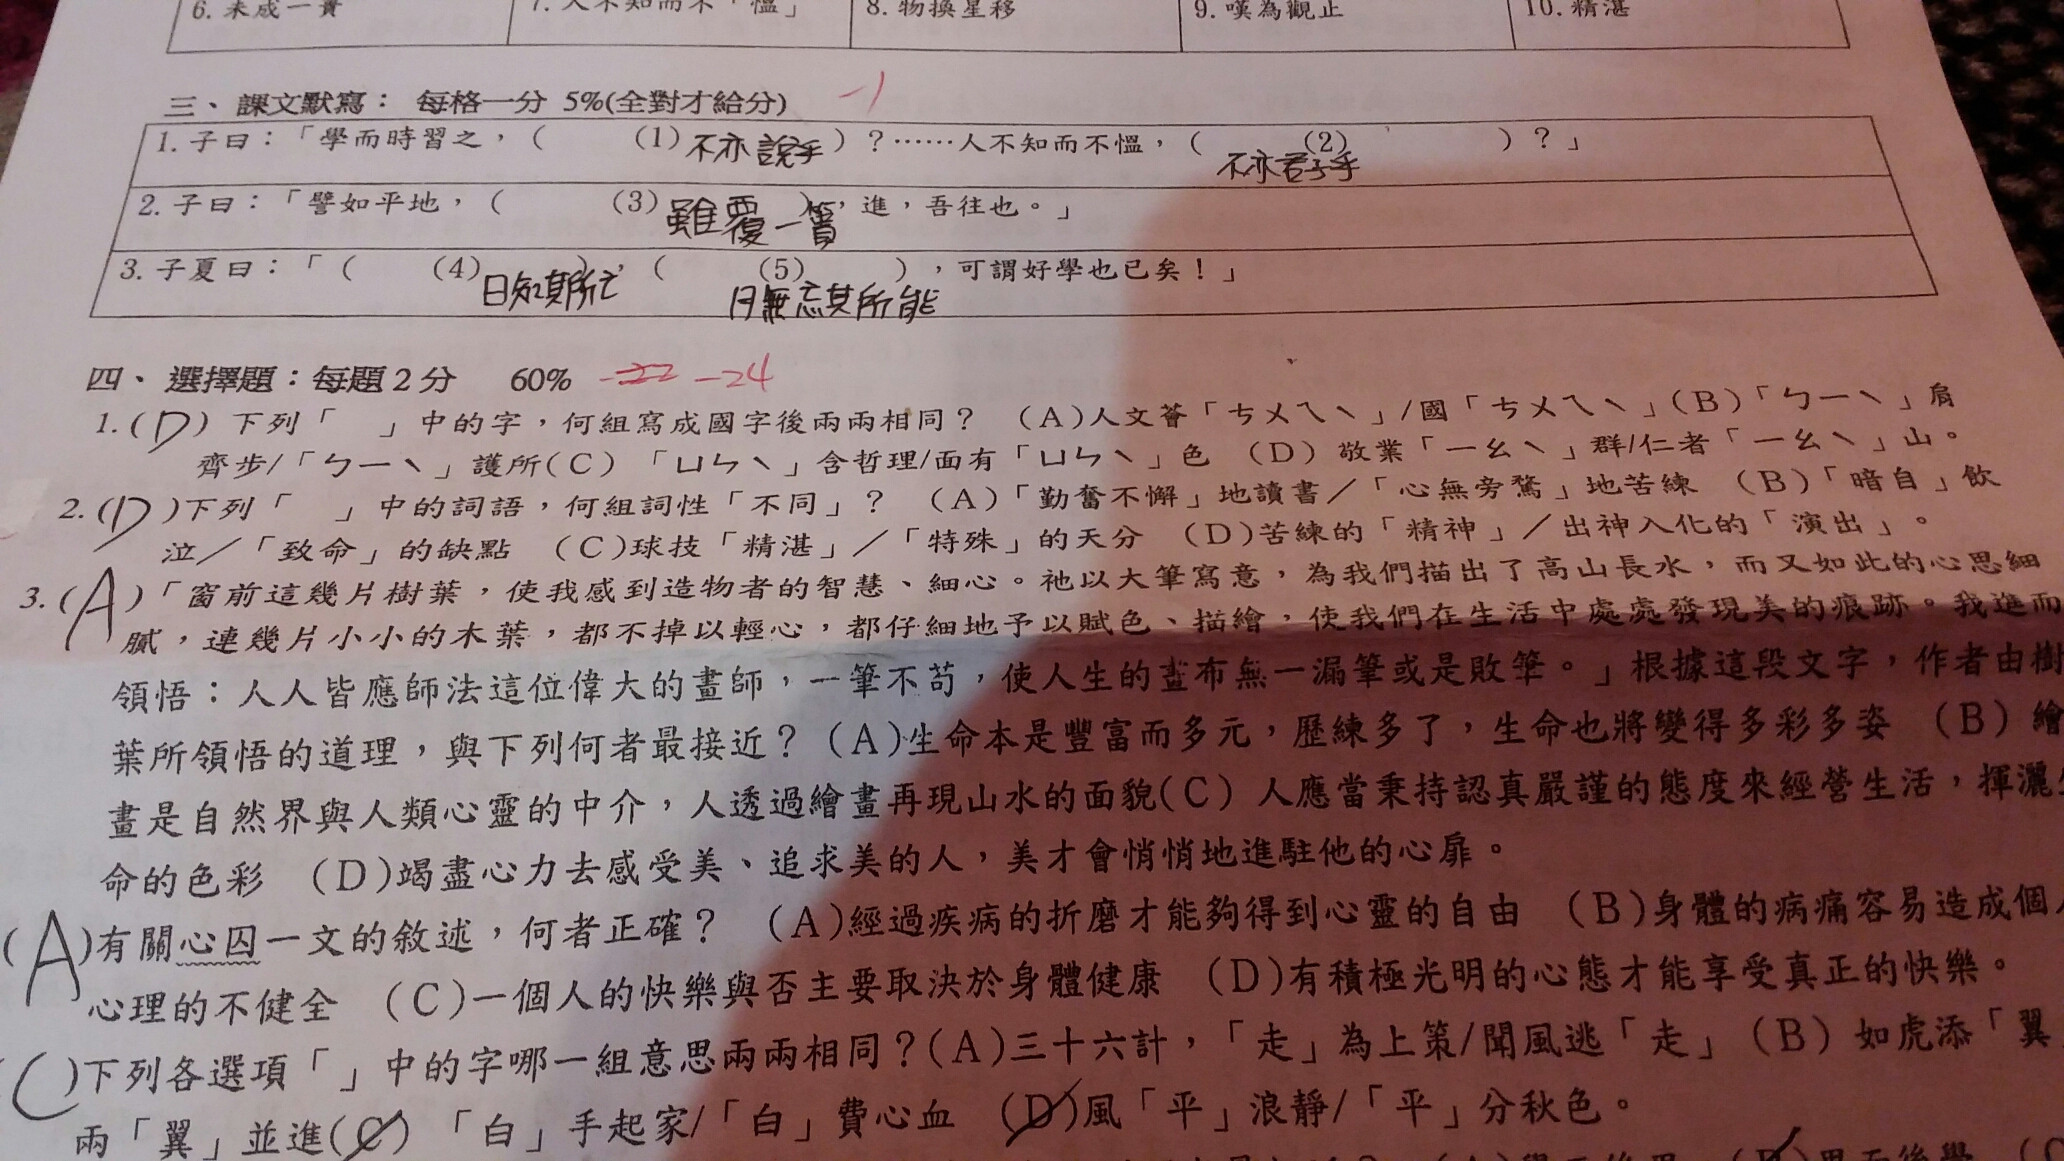 6. 未成一簣 7. 人不知而不「慍」 8. 物換星移 9. 嘆為觀止 10. 精湛
三、課文默寫：每格一分 5%(全對才給分) -1
1. 子曰：「學而時習之，（ (1) 不亦說乎 ）？……人不知而不慍，（ (2) 不亦君子乎 ）？」
2. 子曰：「譬如平地，（ (3) 雖覆一簣 ），進，吾往也。」
3. 子夏曰：「（ (4) 日知其所亡 ），（ (5) 月無忘其所能 ），可謂好學也已矣！」
四、選擇題：每題2分 60% -22 -24
1. (D) 下列「 」中的字，何組寫成國字後兩兩相同？ (A)人文薈「ㄘㄨㄟˋ」/國「ㄘㄨㄟˋ」(B)「ㄅㄧˋ」肩
齊步/「ㄅㄧˋ」護所(C) 「ㄩㄣˋ」含哲理/面有「ㄩㄣˋ」色 (D) 敬業「ㄧㄠˋ」群/仁者「ㄧㄠˋ」山。
2. (D)下列「 」中的詞語，何組詞性「不同」？ (A)「勤奮不懈」地讀書／「心無旁騖」地苦練 (B)「暗自」飲
泣／「致命」的缺點 (C)球技「精湛」／「特殊」的天分 (D)苦練的「精神」／出神入化的「演出」。
3. (A)「窗前這幾片樹葉，使我感到造物者的智慧、細心。祂以大筆寫意，為我們描出了高山長水，而又如此的心思細
膩，連幾片小小的木葉，都不掉以輕心，都仔細地予以賦色、描繪，使我們在生活中處處發現美的痕跡。我進而
領悟：人人皆應師法這位偉大的畫師，一筆不苟，使人生的畫布無一漏筆或是敗筆。」根據這段文字，作者由樹
葉所領悟的道理，與下列何者最接近？(A)生命本是豐富而多元，歷練多了，生命也將變得多彩多姿 (B) 繪
畫是自然界與人類心靈的中介，人透過繪畫再現山水的面貌(C) 人應當秉持認真嚴謹的態度來經營生活，揮灑
命的色彩 (D)竭盡心力去感受美、追求美的人，美才會悄悄地進駐他的心扉。
(A)有關心囚一文的敘述，何者正確？ (A)經過疾病的折磨才能夠得到心靈的自由 (B)身體的病痛容易造成個
心理的不健全 (C)一個人的快樂與否主要取決於身體健康 (D)有積極光明的心態才能享受真正的快樂。
(C)下列各選項「」中的字哪一組意思兩兩相同？(A)三十六計，「走」為上策/聞風逃「走」(B) 如虎添「翼
兩「翼」並進(C) 「白」手起家/「白」費心血 (D)風「平」浪靜/「平」分秋色。